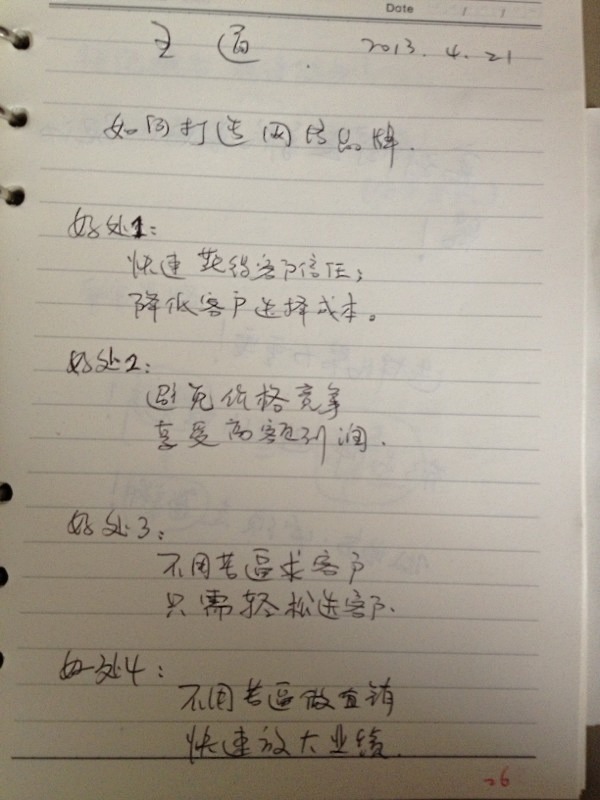 Date / /
王通 . 2013.4.21
如何打造网络品牌.
好处1:
快速获得客户信任;
降低客户选择成本。
好处2:
避免价格竞争
享受高额利润.
好处3:
不用苦逼求客户
只需轻松选客户.
好处4:
不用苦逼做直销
快速放大业绩.
26